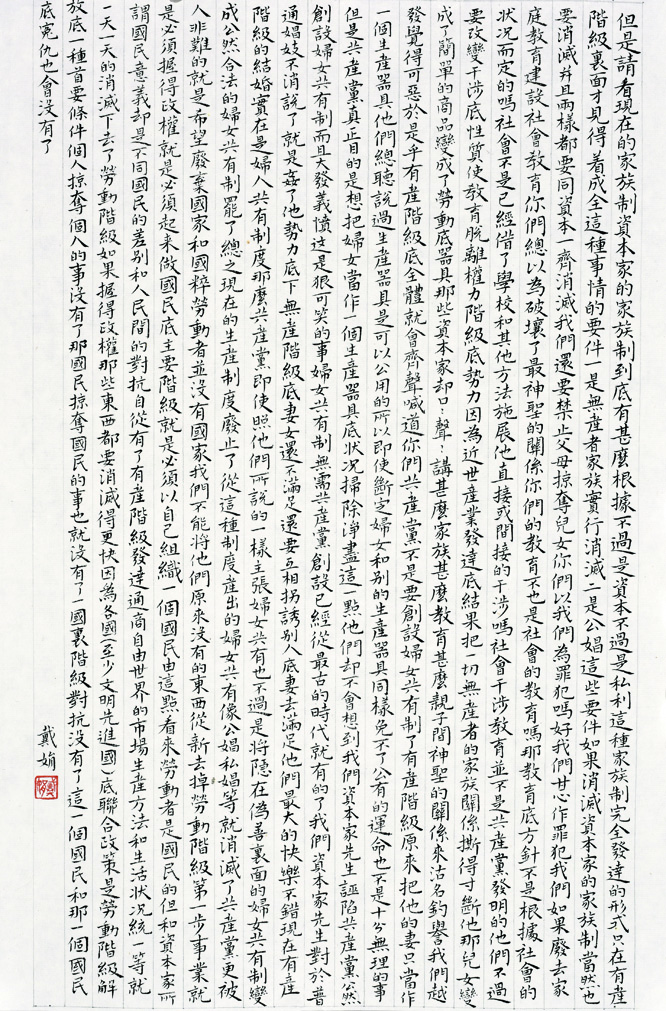 但是請看現在的家族制資本家的家族制到底有甚麼根據不過是資本不過是私利這種家族制完全發達的形式只在有產
階級裏面才見得着成全這種事情的要件一是無產者家族實行消滅二是公娼這些要件如果消滅資本家的家族制當然也
要消滅并且兩樣都要同資本一齊消滅我們還要禁止父母掠奪兒女你們以我們為罪犯嗎好我們甘心作罪犯我們如果廢去家
庭教育建設社會教育你們總以為破壞了最神聖的關係你們的教育不也是社會的教育嗎那教育底方針不是根據社會的
狀况而定的嗎社會不是已經借了學校和其他方法施展他直接或間接的干涉嗎社會干涉教育並不是共產黨發明的他們不過
要改變干涉底性質使教育脫離權力階級底勢力因為近世産業發達底結果把一切無產者的家族關係撕得寸斷他那兒女變
成了簡單的商品變成了勞動底器具那些資本家却口口聲聲講甚麼家族甚麼教育甚麼親子間神聖的關係來沽名釣譽我們越
發覺得可惡於是乎有產階級底全體就會齊聲喊道你們共產黨不是要創設婦女共有制了有產階級原來把他的妻只當作
一個生產器具他們總聽說過生產器具是可以公用的所以即使斷定婦女和別的生產器具同樣免不了公有的運命也不是十分無理的事
但是共產黨真正目的是想把婦女當作一個生產器具底狀况掃除淨盡這一點他們却不會想到我們資本家先生誣陷共產黨公然
創設婦女共有制而且大發義憤这是狠可笑的事婦女共有制無需共產黨創設已經從最古的時代就有的了我們資本家先生對於普
通娼妓不消說了就是姦了他勢力底下無產階級底妻女還不滿足還要互相拐誘別人底妻去滿足他們最大的快樂不錯現在有產
階級的結婚實在是婦人共有制度那麼共產黨即使照他們所說的一樣主張婦女共有也不過是將隱在偽善裏面的婦女共有制變
成公然合法的婦女共有制罷了總之現在的生產制度廢止了從這種制度產出的婦女共有像公娼私娼等就消滅了共產黨更被
人非難的就是希望廢棄國家和國粹勞動者並沒有國家我們不能將他們原來沒有的東西從新去掉勞動階級第一步事業就
是必須握得政權就是必須起來做國民底主要階級就是必須以自己組織一個國民由這點看來勞動者是國民的但和資本家所
謂國民意義却是不同國民的差別和人民間的對抗自從有了有產階級發達通商自由世界的市場生產方法和生活狀况統一等就
一天一天的消滅下去了勞動階級如果握得政權那些東西都要消滅得更快因為各國(至少文明先進國)底聯合政策是勞動階級解
放底一種首要條件個人掠奪個人的事没有了那國民掠奪國民的事也就沒有了一國裏階級對抗没有了這一個國民和那一個國民
底寃仇也會没有了
戴娟